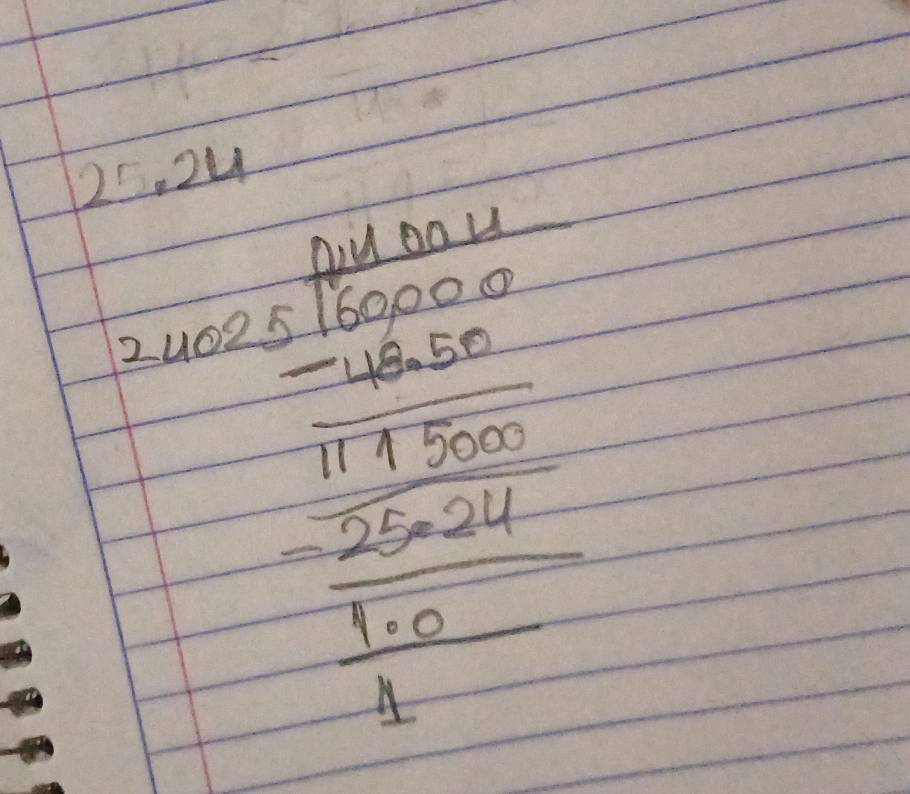 25.24
24025 60,000
- 48.50
11 1 5000
- 25.24
1.0
1